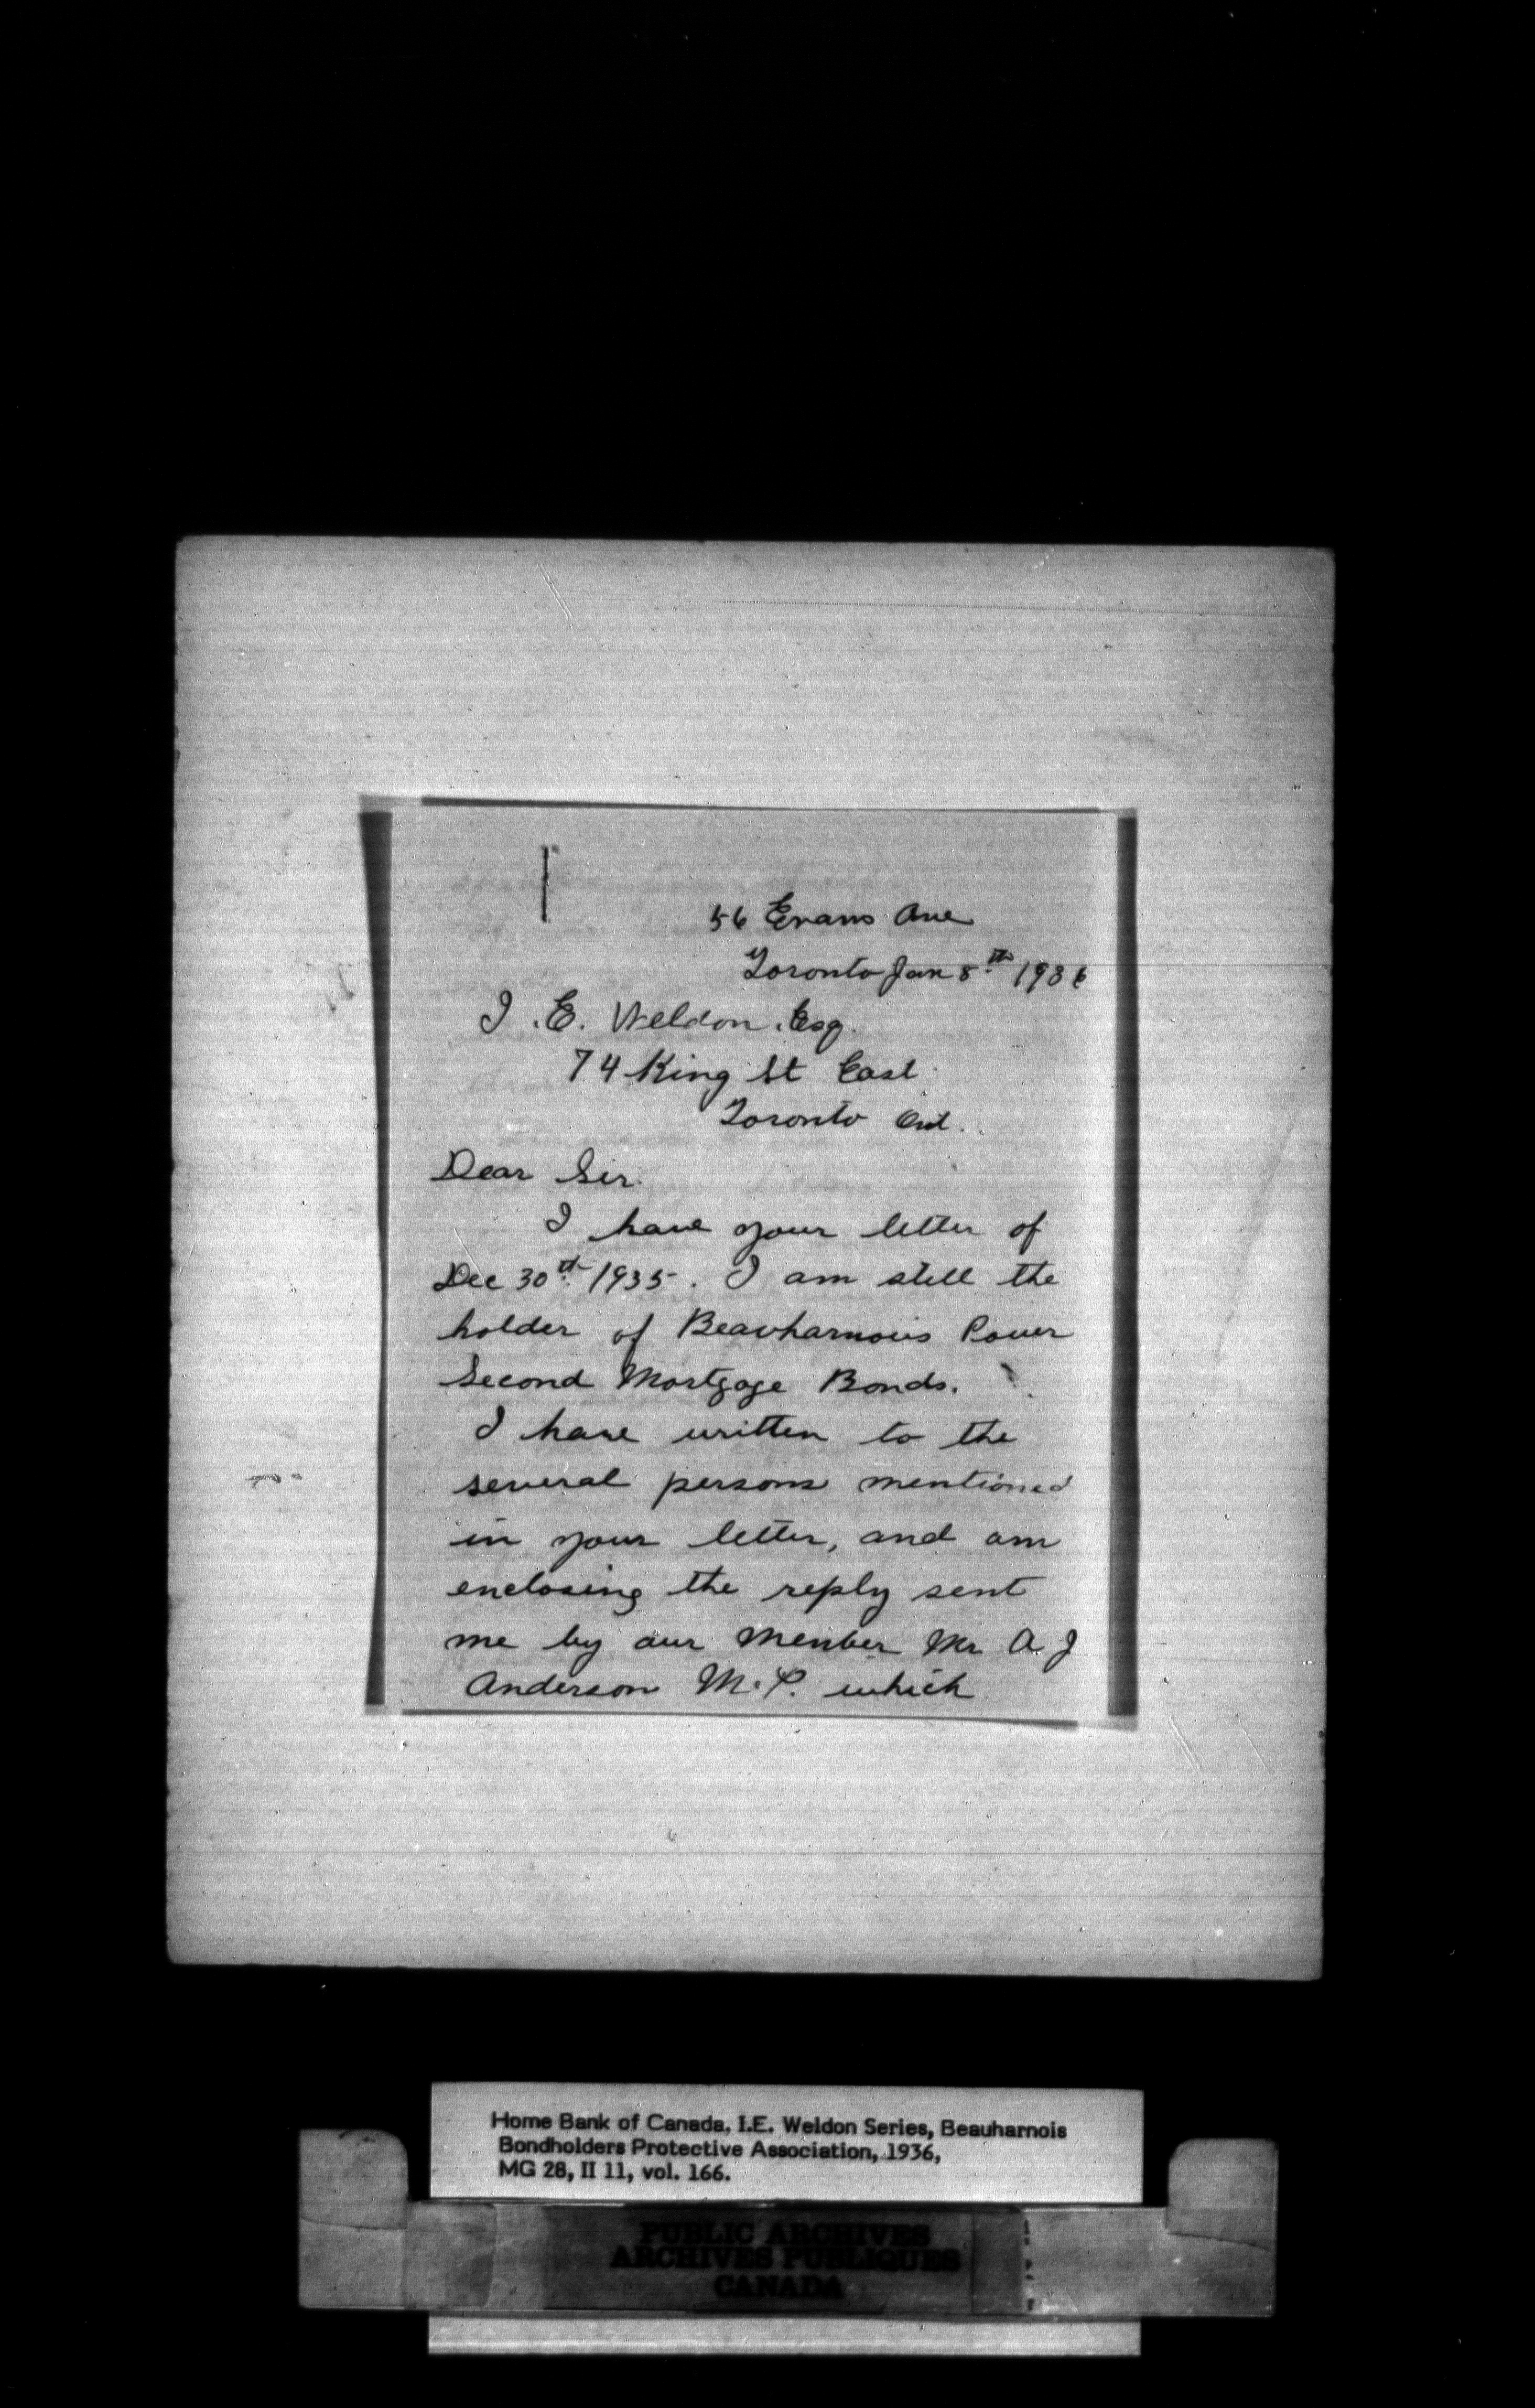 56 Evans Ave
Toronto Jan 8th 1936
I. E. Weldon. Esq.
74 King St East
Toronto Ont.
Dear Sir.
I have your letter of
Dec 30th 1935. I am still the
holder of Beauharnois Power
Second Mortgage Bonds.
I have written to the
several persons mentioned
in your letter, and am
enclosing the reply sent
me by our Member Mr A. J
Anderson M.P. which
Home Bank of Canada, I.E. Weldon Series, Beauharnois
Bondholders Protective Association, 1936,
MG 28, II 11, vol. 166.
PUBLIC ARCHIVES
ARCHIVES PUBLIQUES
CANADA